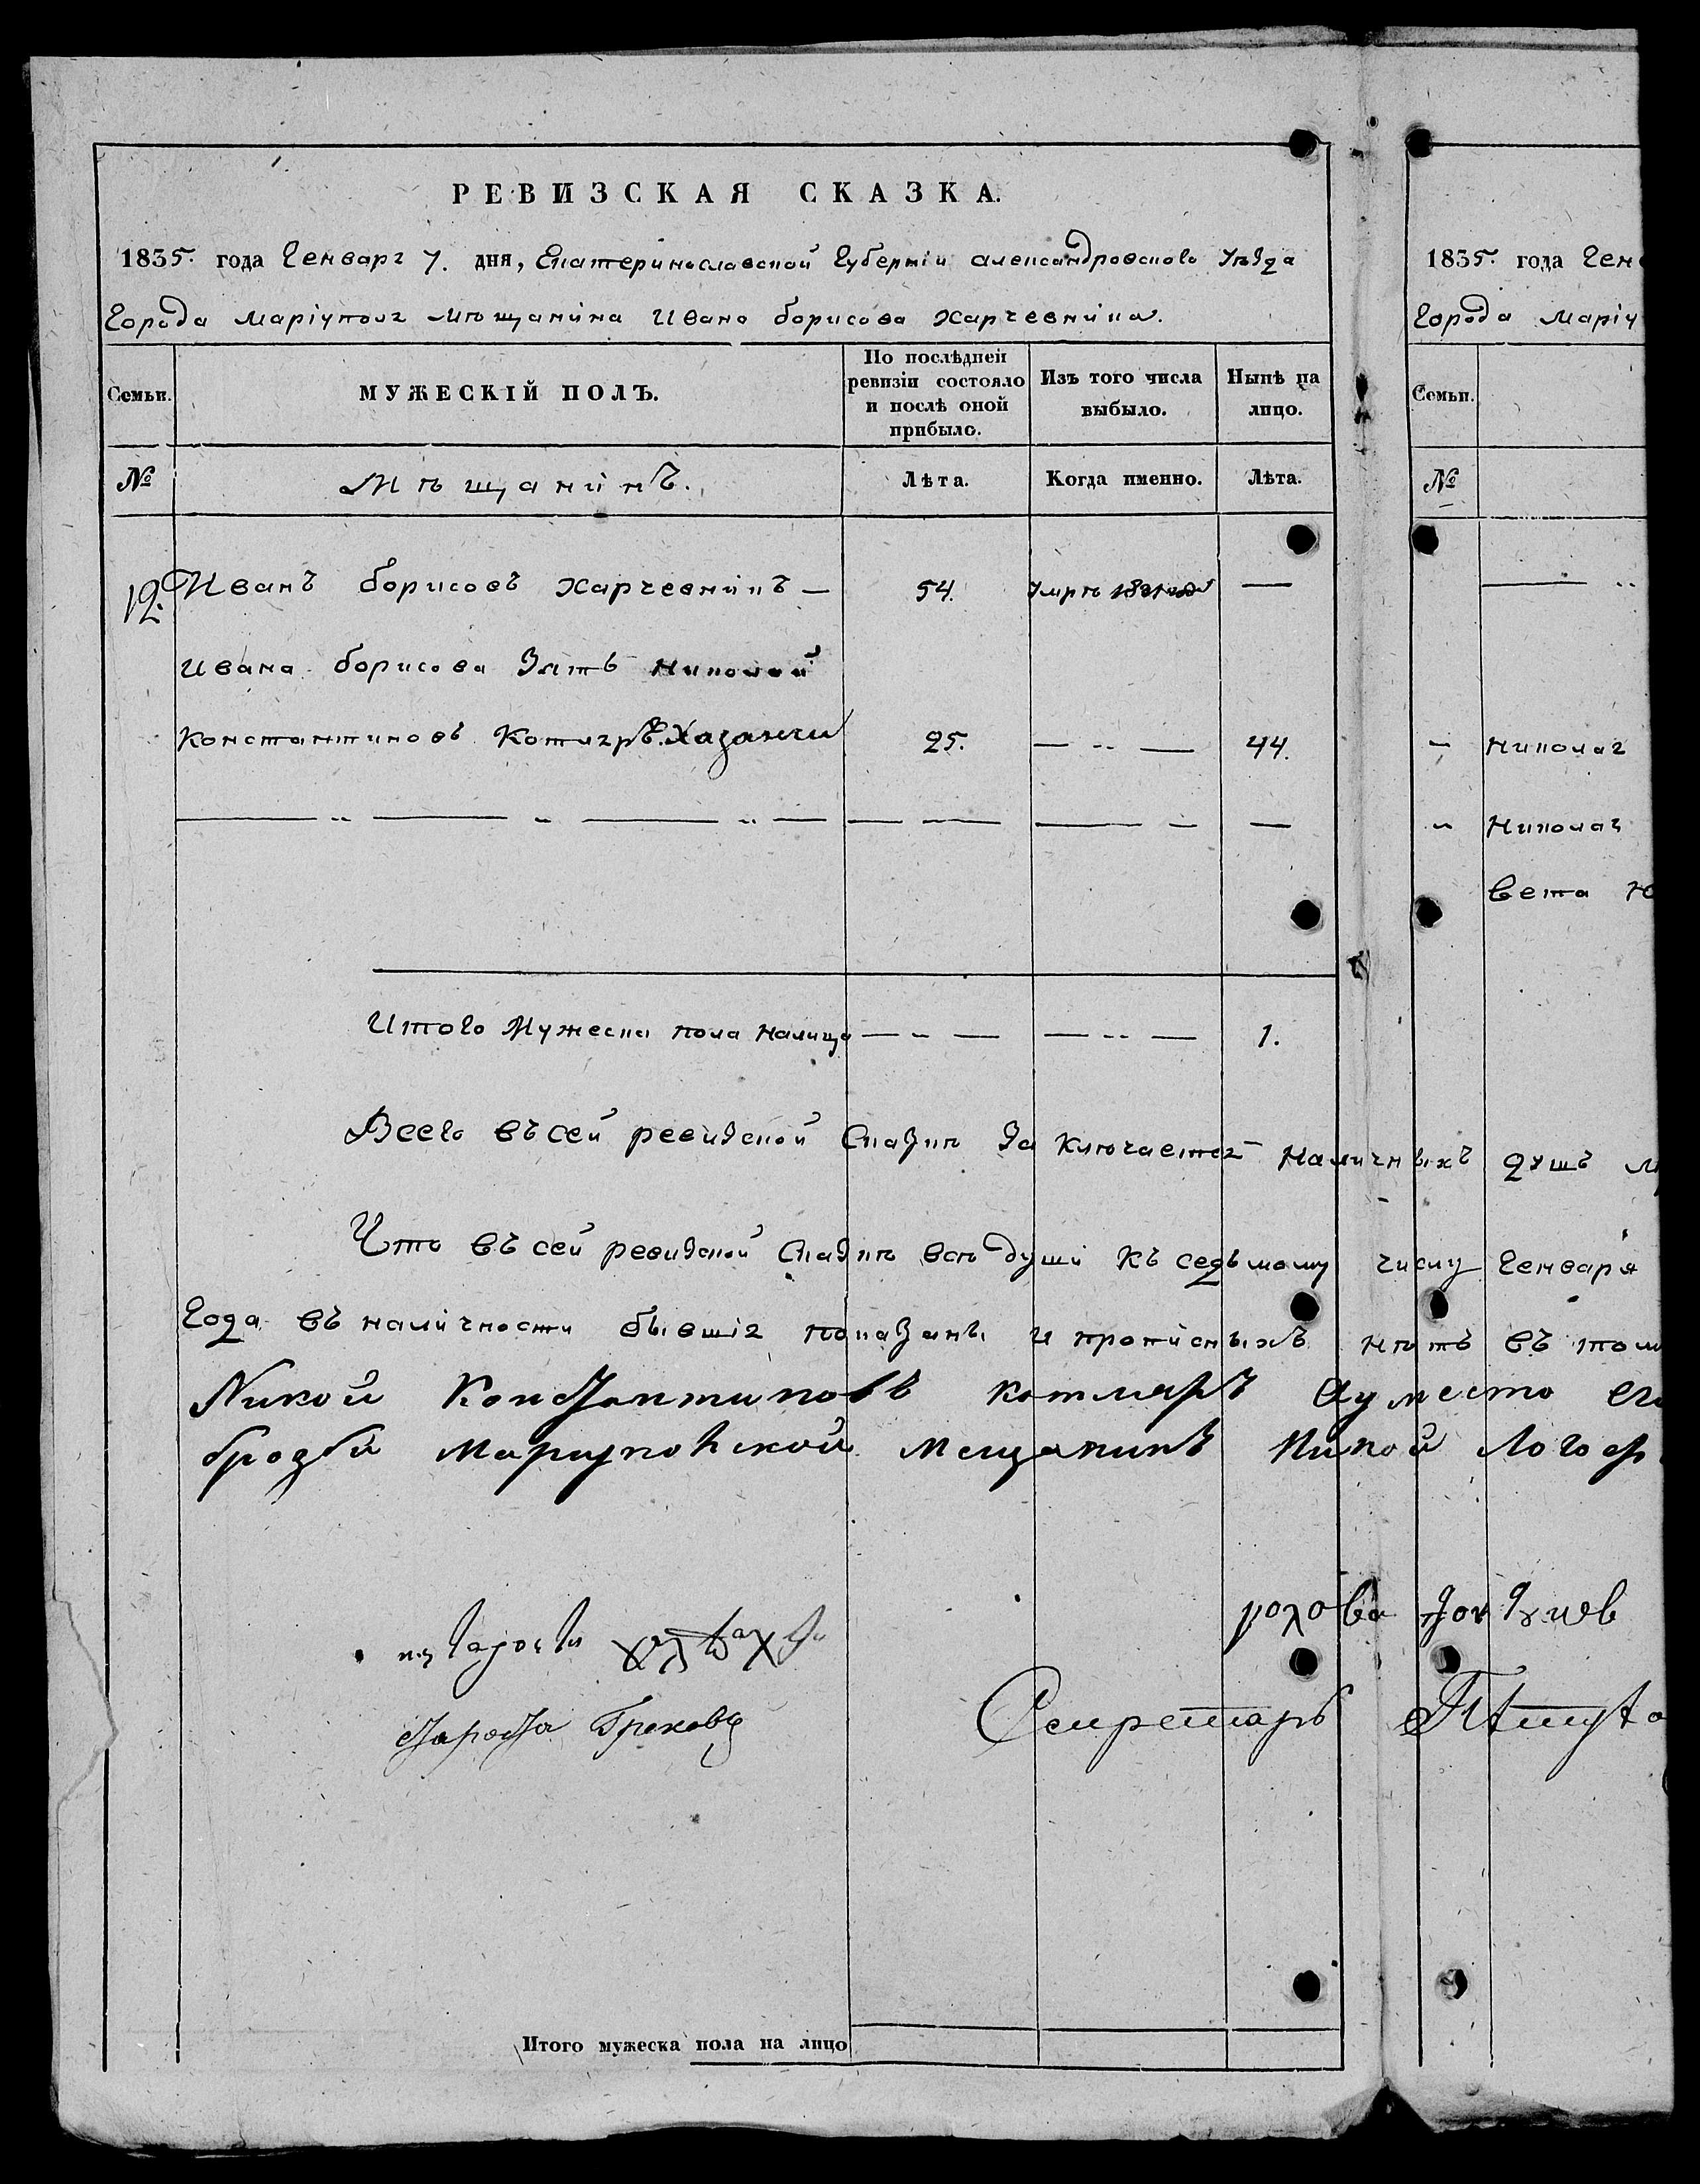 РЕВИЗСКАЯ СКАЗКА.
1835. года Генваря 7. дня, Екатеринославской Губерніи александровского Уѣзда
Города Маріуполя мѣщанина Ивана борисова Харчевника.
Семьи.
МУЖЕСКІЙ ПОЛЪ.
По послѣдней ревизіи состояло и послѣ оной прибыло.
Изъ того числа выбыло.
Нынѣ на лицо.
№
Мѣщанинъ.
Лѣта.
Когда именно.
Лѣта.
12. Иванъ борисовъ харчевникъ — 54. Умрѣ 1821 года —
Ивана борисова Зять Николай
Константиновъ Котляръ. Хазанчи 25. — 44.
Итого Мужеска пола налицо — 1.
Всего въ сей ревизской Сказкѣ Заключается Наличныхъ душъ
Что въ сей ревизской Сказкѣ всѣ души къ седьмому числу Генваря
Года въ наличности бывшія показаны и прописныхъ нѣтъ въ том
Николай Константиновъ котляръ
Мариупольской мещанинъ
голова
Староста Грековъ
Секретарь
Итого мужеска пола на лицо
1835. года Ген
Города Маріу
Семьи.
№
Николая
Николая
вета